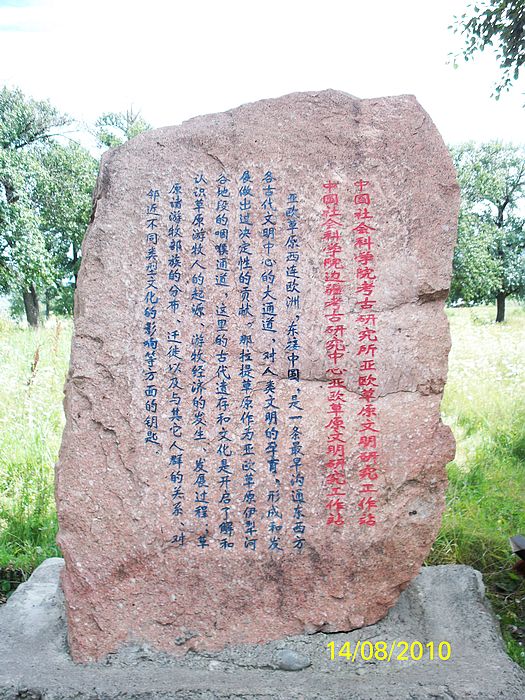 中国社会科学院考古研究所亚欧草原文明研究工作站
中国社会科学院边疆考古研究中心亚欧草原文明研究工作站
亚欧草原西连欧洲，东接中国，是一条最早沟通东西方
各古代文明中心的大通道，对人类文明的孕育、形成和发
展做出过决定性的贡献。那拉提草原作为亚欧草原伊犁河
谷地段的咽喉通道，这里的古代遗存和文化是开启了解和
认识草原游牧人的起源、游牧经济的发生、发展过程、草
原诸游牧部族的分布、迁徙以及与其它人群的关系、对
邻近不同类型文化的影响等方面的钥匙。
14/08/2010